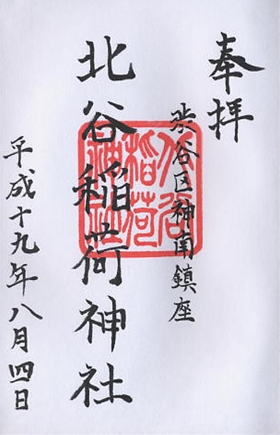 奉拝
渋谷区神南鎮座
北谷稲荷神社
北谷稲荷神社
平成十九年八月四日